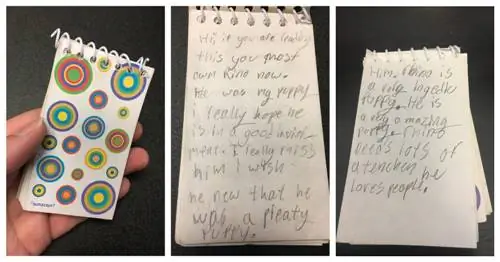 Hi, if you are reading
this you most
own Rino now.
He was my puppy
i really hope he
is in a good
ment. I really miss
him I wish
he new that he
was a pleaty
puppy.
Him. Rhino is
a very
puppy. He is
a very amazing
puppy. Rhino
needs lots of
atenchen he
loves people.